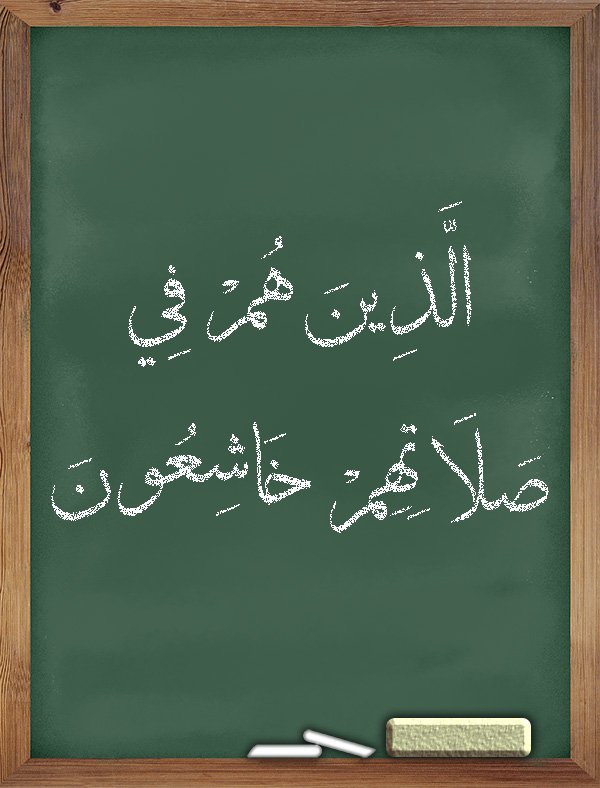 الَّذِينَ هُمْ فِي
صَلَاتِهِمْ خَاشِعُونَ